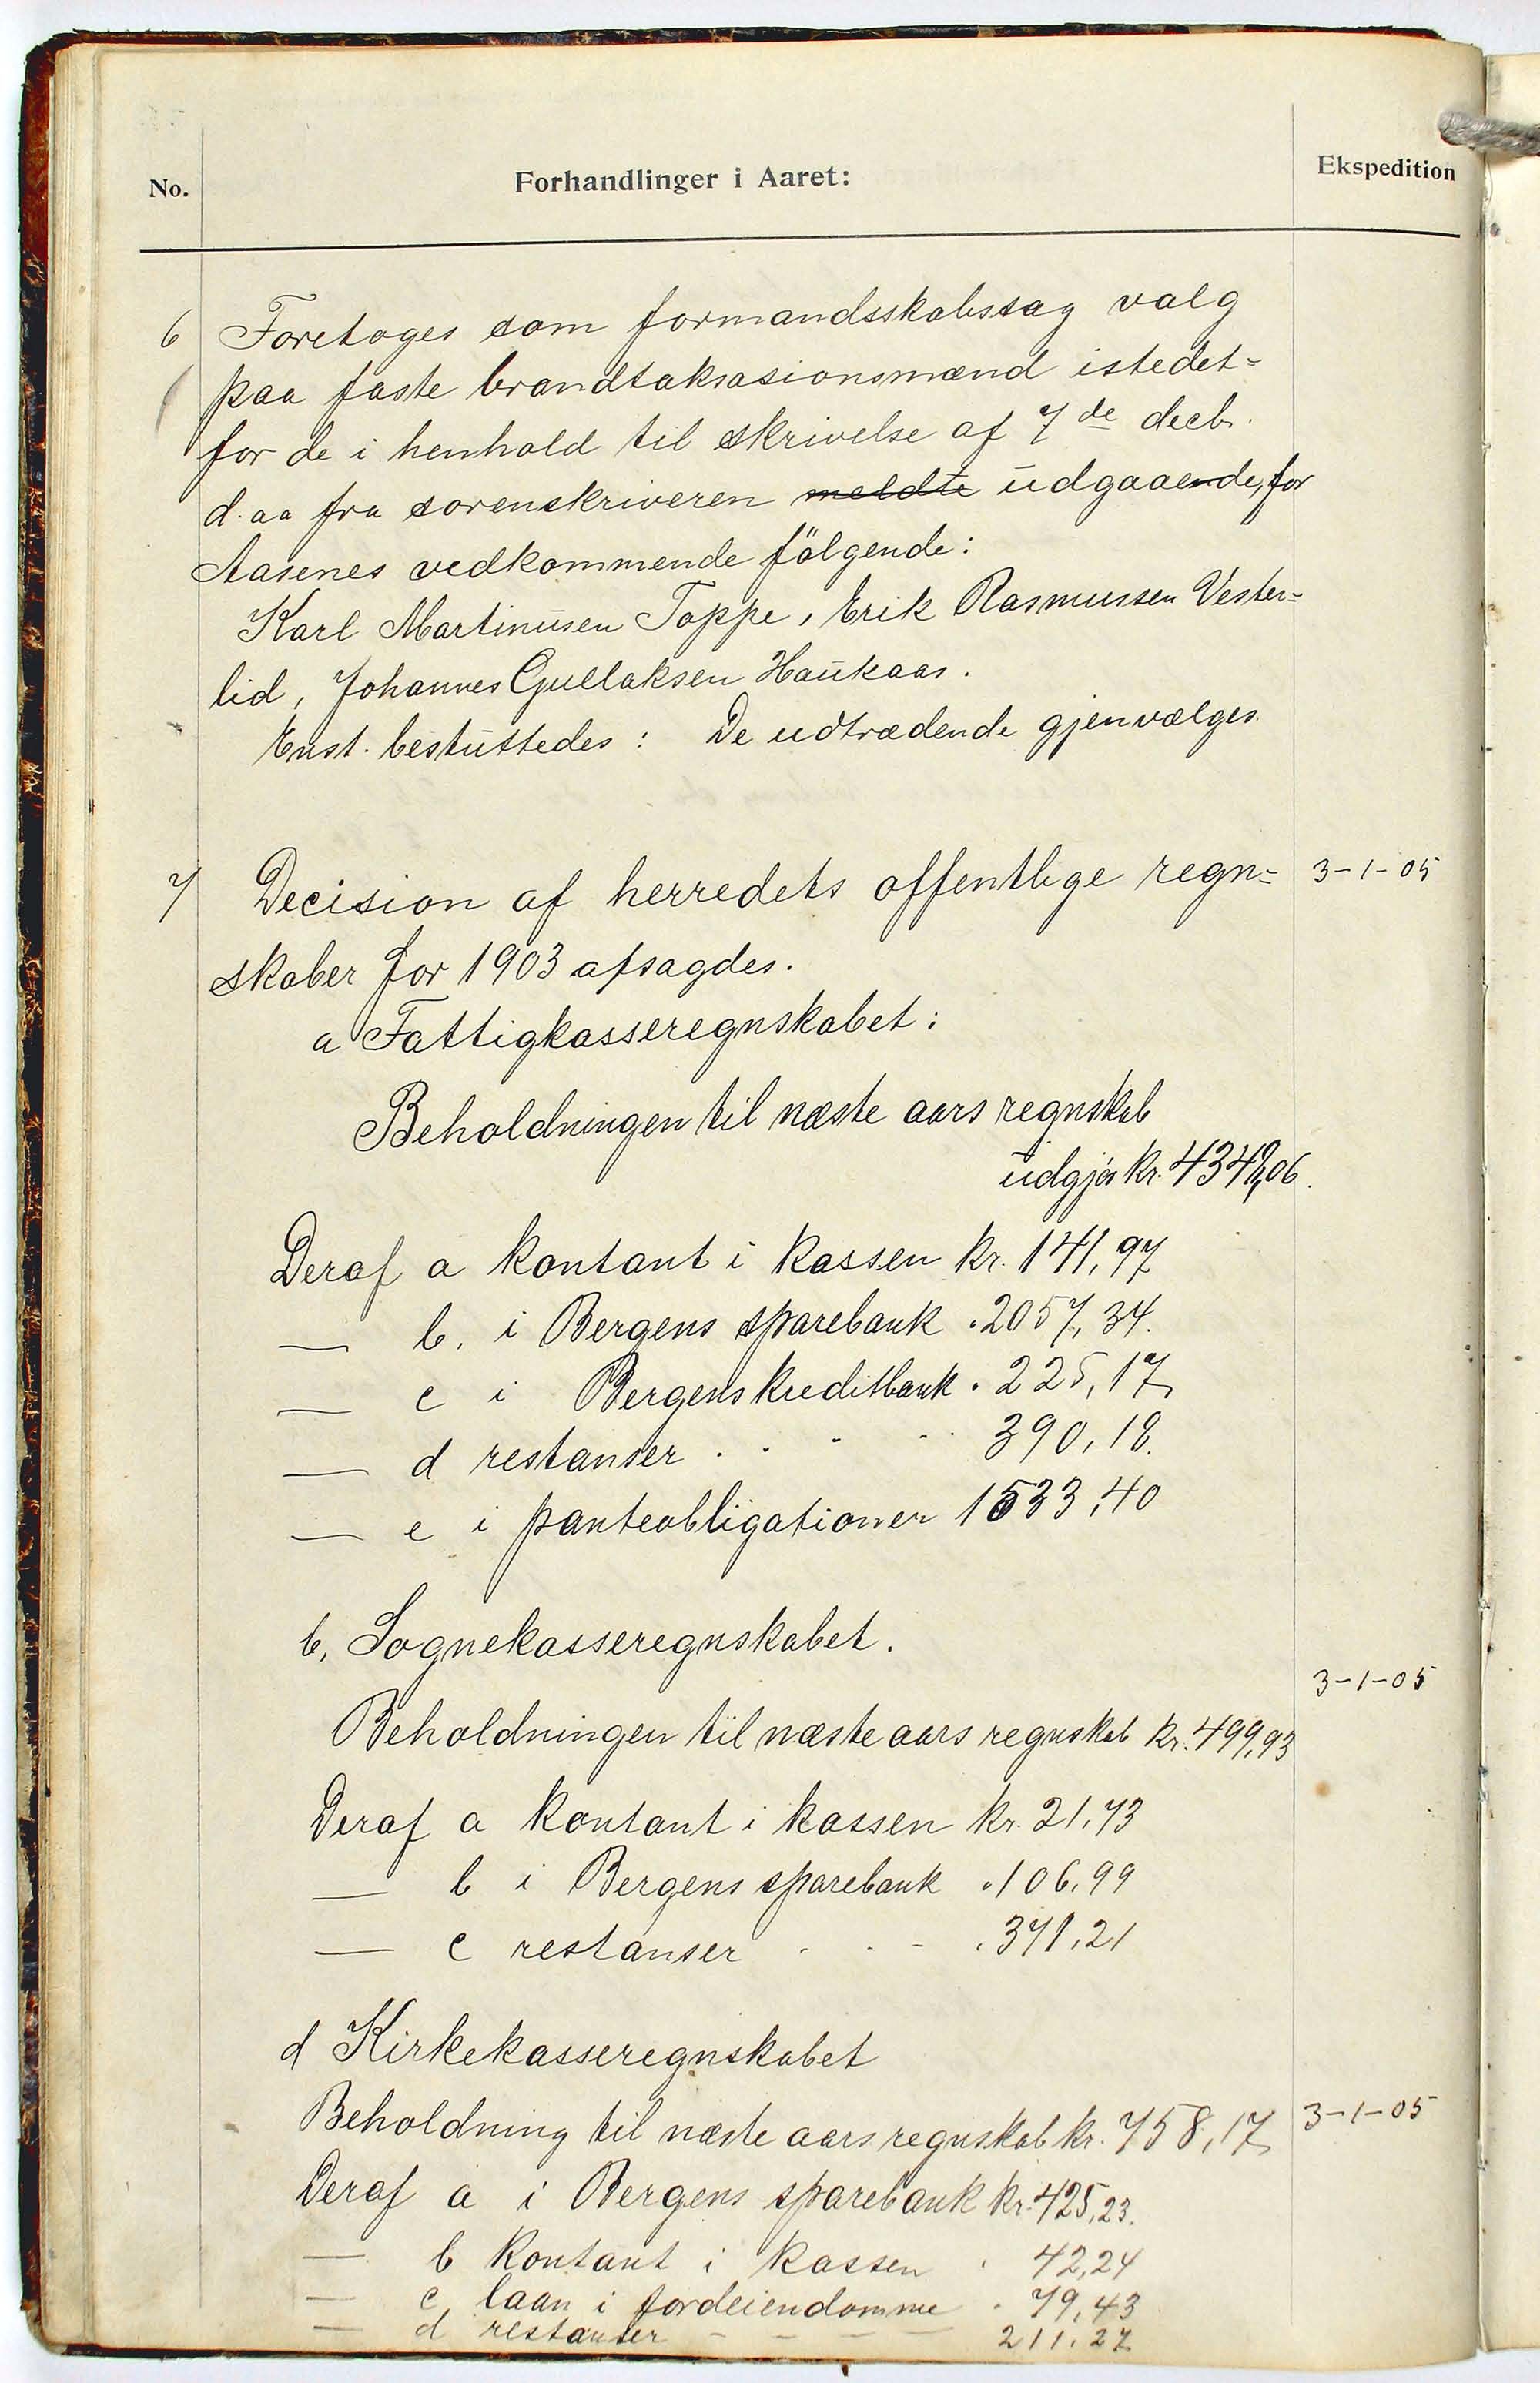 No. Forhandlinger i Aaret: Ekspedition
6 Foretoges som formandsskabssag valg
paa faste brandtaksasionsmænd istedet=
for de i henhold til skrivelse af 7de decbr.
d. aa fra sorenskriveren meldte udgaaende, for
Aasenes vedkommende følgende:
Karl Martinusen Toppe, Erik Rasmussen Vester=
lid, Johannes Gullaksen Haukaas.
Enst. besluttedes: De udtrædende gjenvælges.
7 Decision af herredets offentlige regn= 3-1-05
skaber for 1903 afsagdes.
a Fattigkasseregnskabet:
Beholdningen til næste aars regnskab
udgjør kr. 4348,06.
Deraf a kontant i kassen kr. 141,97
— b. i Bergens sparebank " 2057,34.
— c i Bergenskreditbank " 225,17
— d restanser . . - - 390,18.
— e i panteobligationer 1533,40
b, Sognekasseregnskabet.
3-1-05
Beholdningen til næste aars regnskab kr. 499,93
Deraf a kontant i kassen kr. 21,73
— b i Bergens sparebank " 106,99
— c restanser - - - " 371,21
d Kirkekasseregnskabet
Beholdning til næste aars regnskab kr. 758,17 3-1-05
Deraf a i Bergens sparebank kr. 425,23.
— b kontant i kassen " 42,24
— c laan i jordeiendomme " 79,43
— d restanser - - - - 211,27